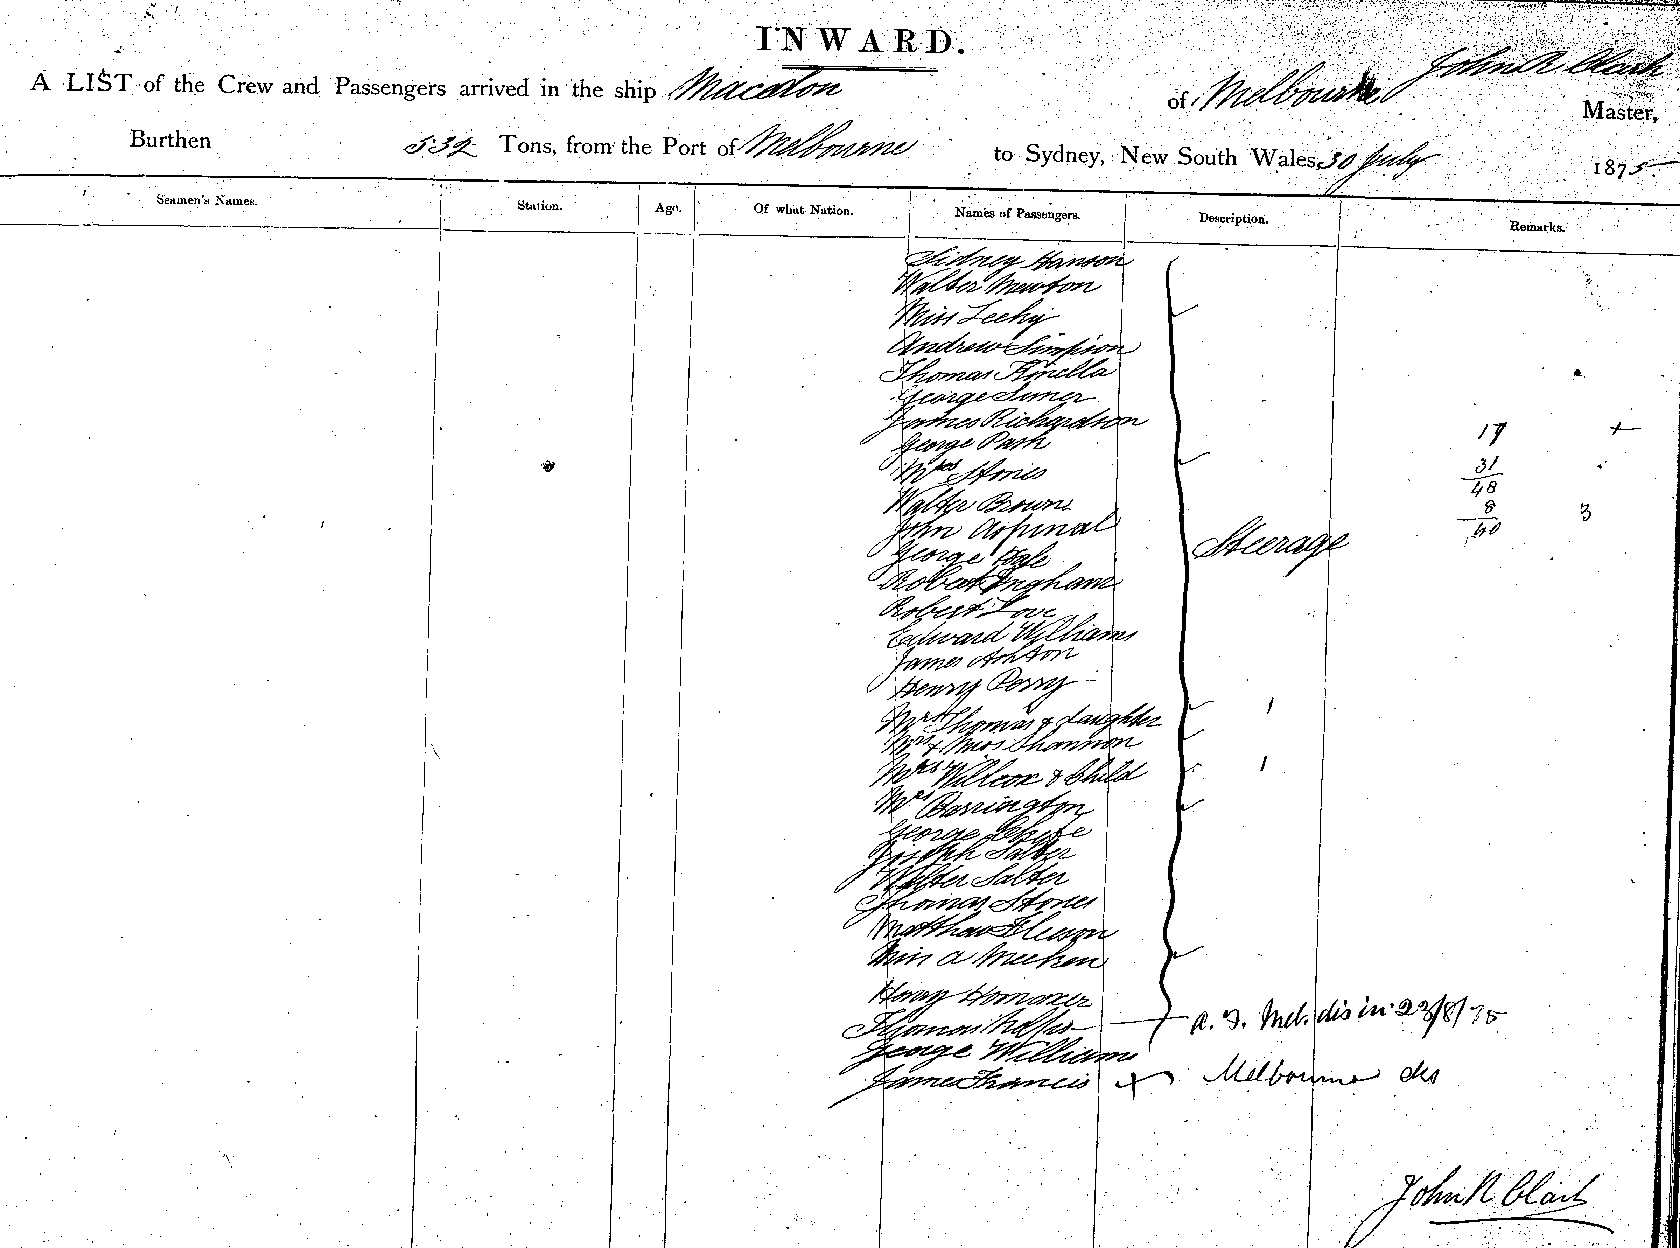 INWARD.
A LIST of the Crew and Passengers arrived in the ship Macedon of Melbourne John R Clark Master,
Burthen 532 Tons, from the Port of Melbourne to Sydney, New South Wales, 30 July 1875
Seamen's Names. Station. Age. Of what Nation. Names of Passengers. Description. Remarks.
Sidney Hanson
Walter Newton
Miss Leehy
Andrew Simpson
Thomas Kinella
George
James Richardson
George Pash
17 +
Mrs Stones
31
Walter Browne
48
John Aspinal
8 3
Steerage
60
George
Robert Ingham
Robert Love
Edward Williams
James Ashton
Henry Perry
Mrs Thomas & daughter 1
Mrs & Miss Shannon
Mrs Willcox & Child 1
Mrs Barrington
George White
Joseph Salter
Walter Salter
Thomas Stones
Matthew Gleeson
Miss A Meehen
Harry
Thomas a. I. Mel. dis in 23/8/75
George Williams
James Francis x Melbourne
John R Clark